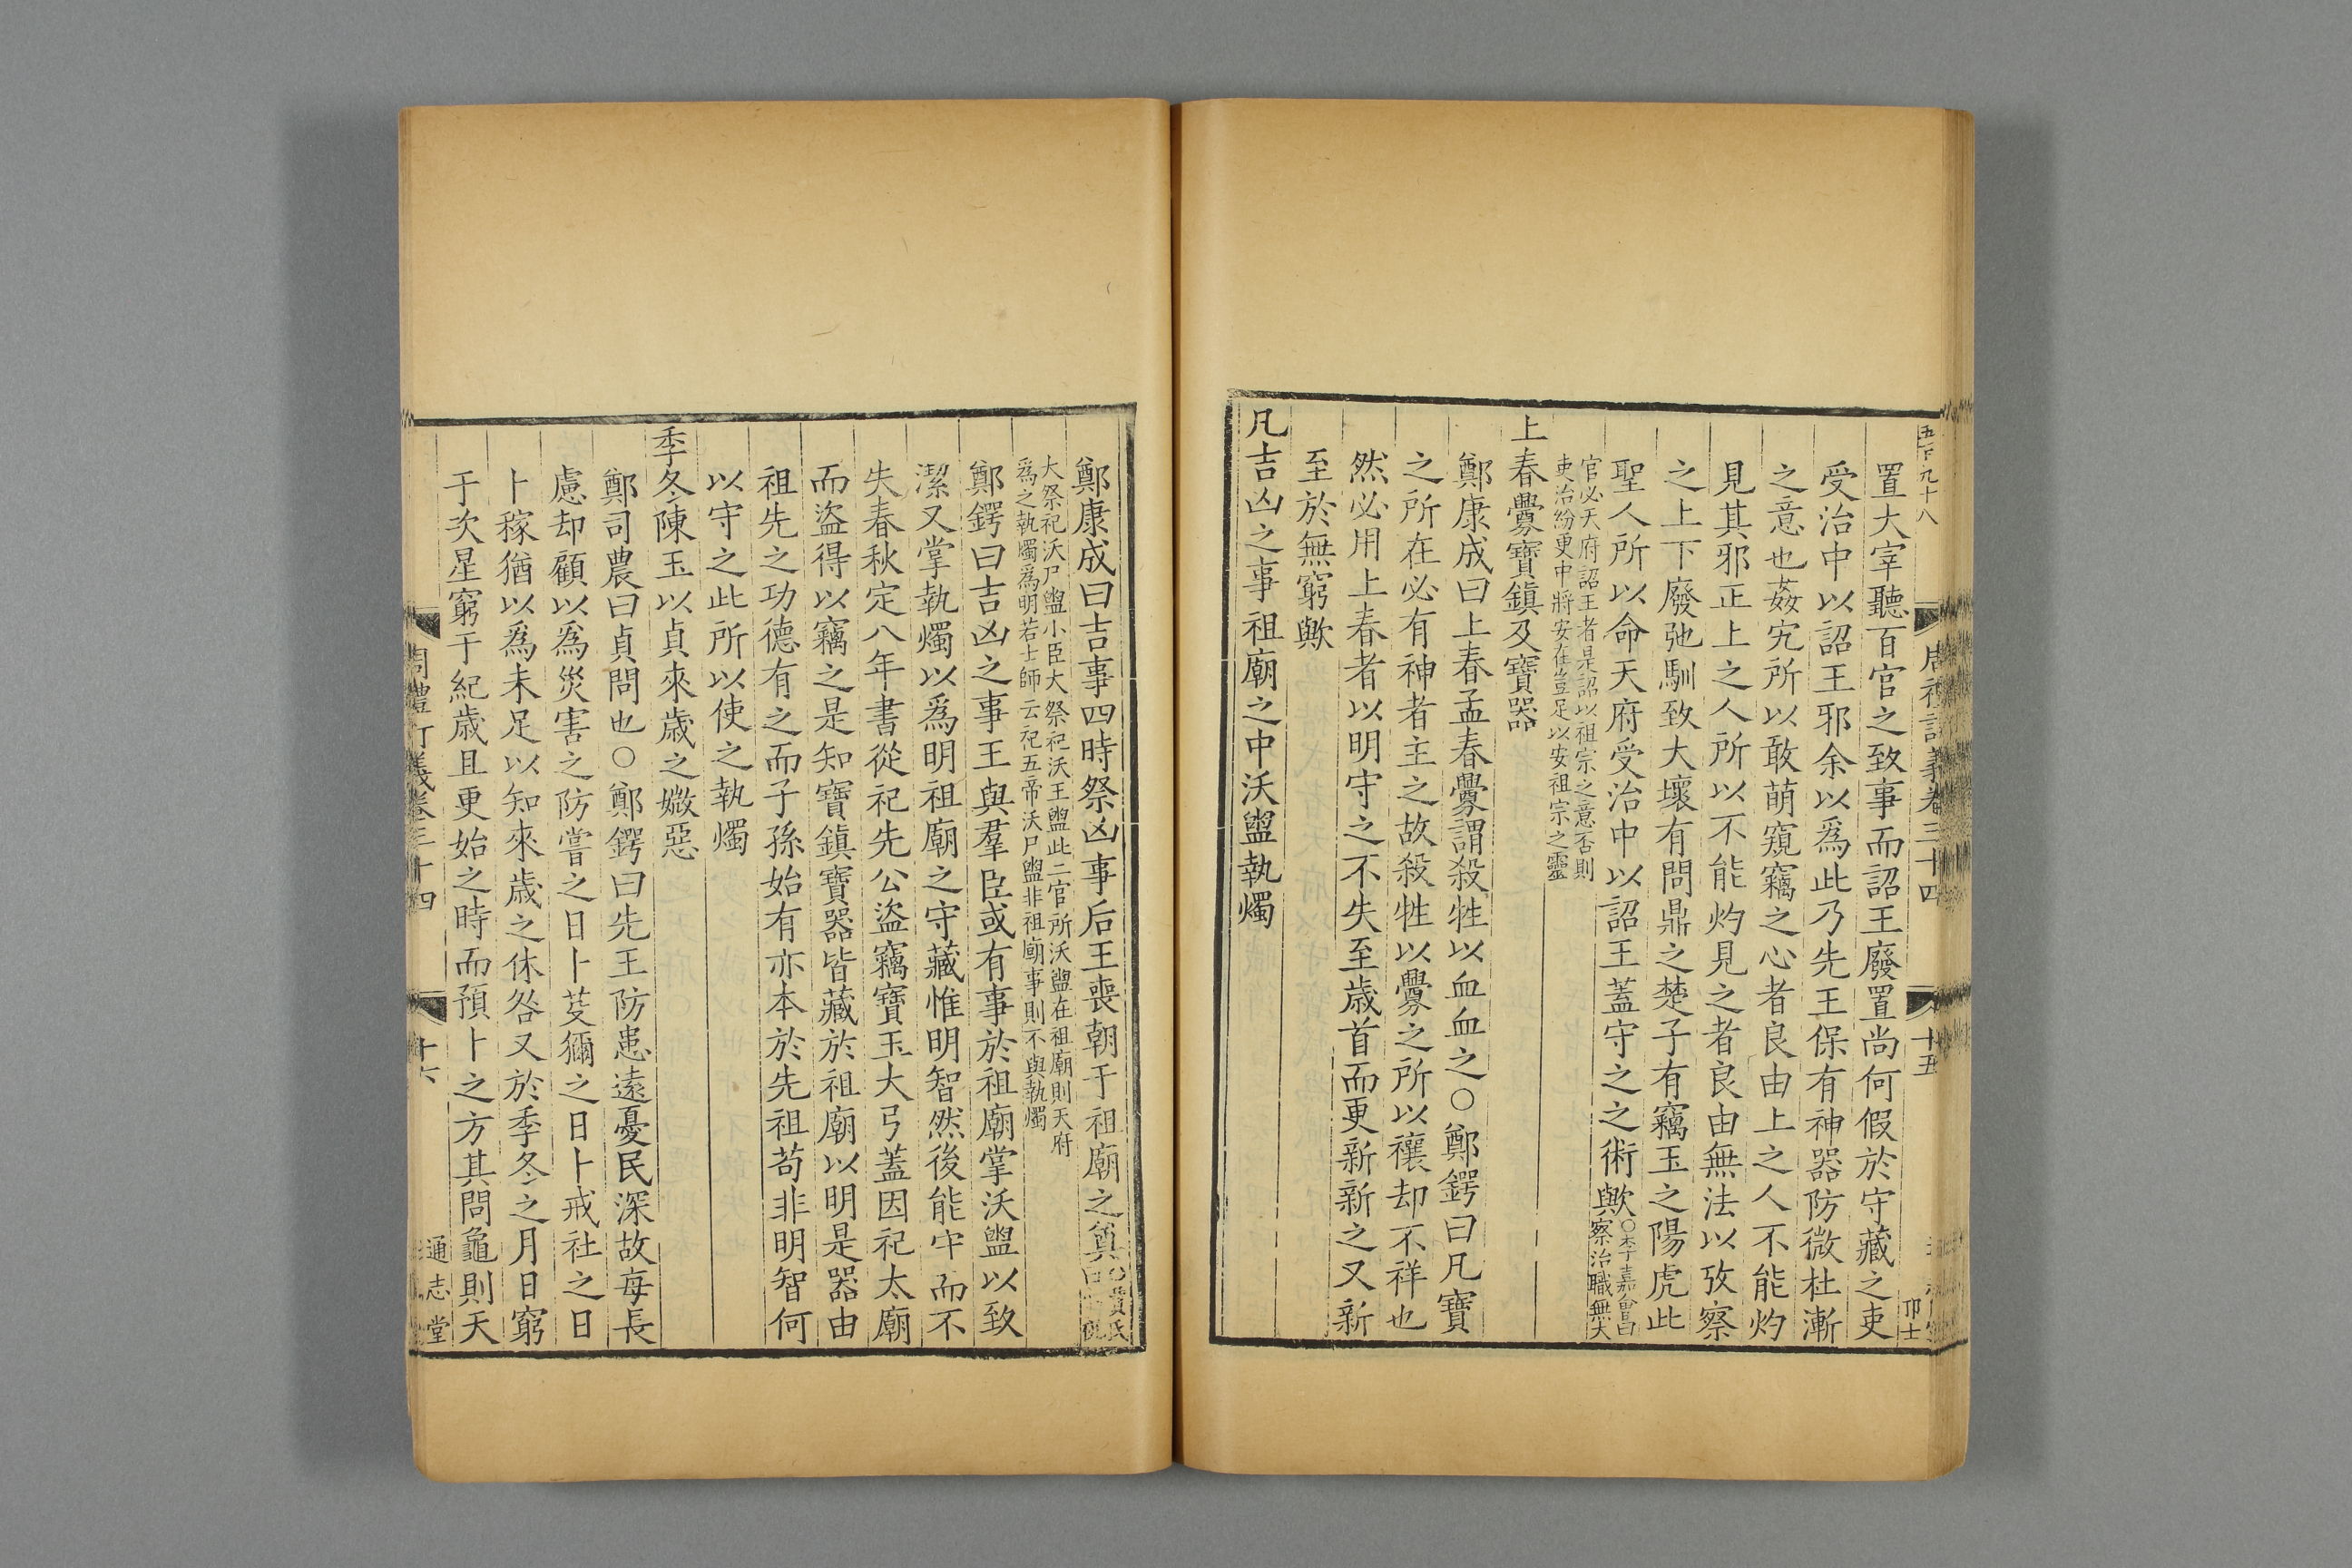 置大宰聽百官之致事而詔王廢置尚何假於守藏之吏
受治中以詔王邪余以爲此乃先王保有神器防微杜漸
之意也姦宄所以敢萌窺竊之心者良由上之人不能灼
見其邪正上之人所以不能灼見之者良由無法以攷察
之上下廢弛馴致大壞有問鼎之楚子有竊玉之陽虎此
聖人所以命天府受治中以詔王蓋守之之術歟○李嘉會曰察治職無大
官必天府詔王者是詔以祖宗之意否則
吏治紛更中將安在豈足以安祖宗之靈
上春釁寶鎮及寶器
鄭康成曰上春孟春釁謂殺牲以血血之○鄭鍔曰凡寶
之所在必有神者主之故殺牲以釁之所以禳却不祥也
然必用上春者以明守之不失至歲首而更新新之又新
至於無窮歟
凡吉凶之事祖廟之中沃盥執燭
鄭康成曰吉事四時祭凶事后王喪朝于祖廟之奠○賈氏曰
大祭祀沃尸盥小臣大祭祀沃王盥此二官所沃盥在祖廟則天府
爲之執燭爲明若士師云祀五帝沃尸盥非祖廟事則不與執燭
鄭鍔曰吉凶之事王與羣臣或有事於祖廟掌沃盥以致
潔又掌執燭以爲明祖廟之守藏惟明智然後能守而不
失春秋定八年書從祀先公盜竊寶玉大弓蓋因祀太廟
而盜得以竊之是知寶鎮寶器皆藏於祖廟以明是器由
祖先之功德有之而子孫始有亦本於先祖苟非明智何
以守之此所以使之執燭
季冬陳玉以貞來歲之媺惡
鄭司農曰貞問也○鄭鍔曰先王防患遠憂民深故每長
慮却顧以爲災害之防嘗之日卜芟獮之日卜戒社之日
卜稼猶以爲未足以知來歲之休咎又於季冬之月日窮
于次星窮于紀歲且更始之時而預卜之方其問龜則天
周禮訂義卷三十四
十六
通志堂